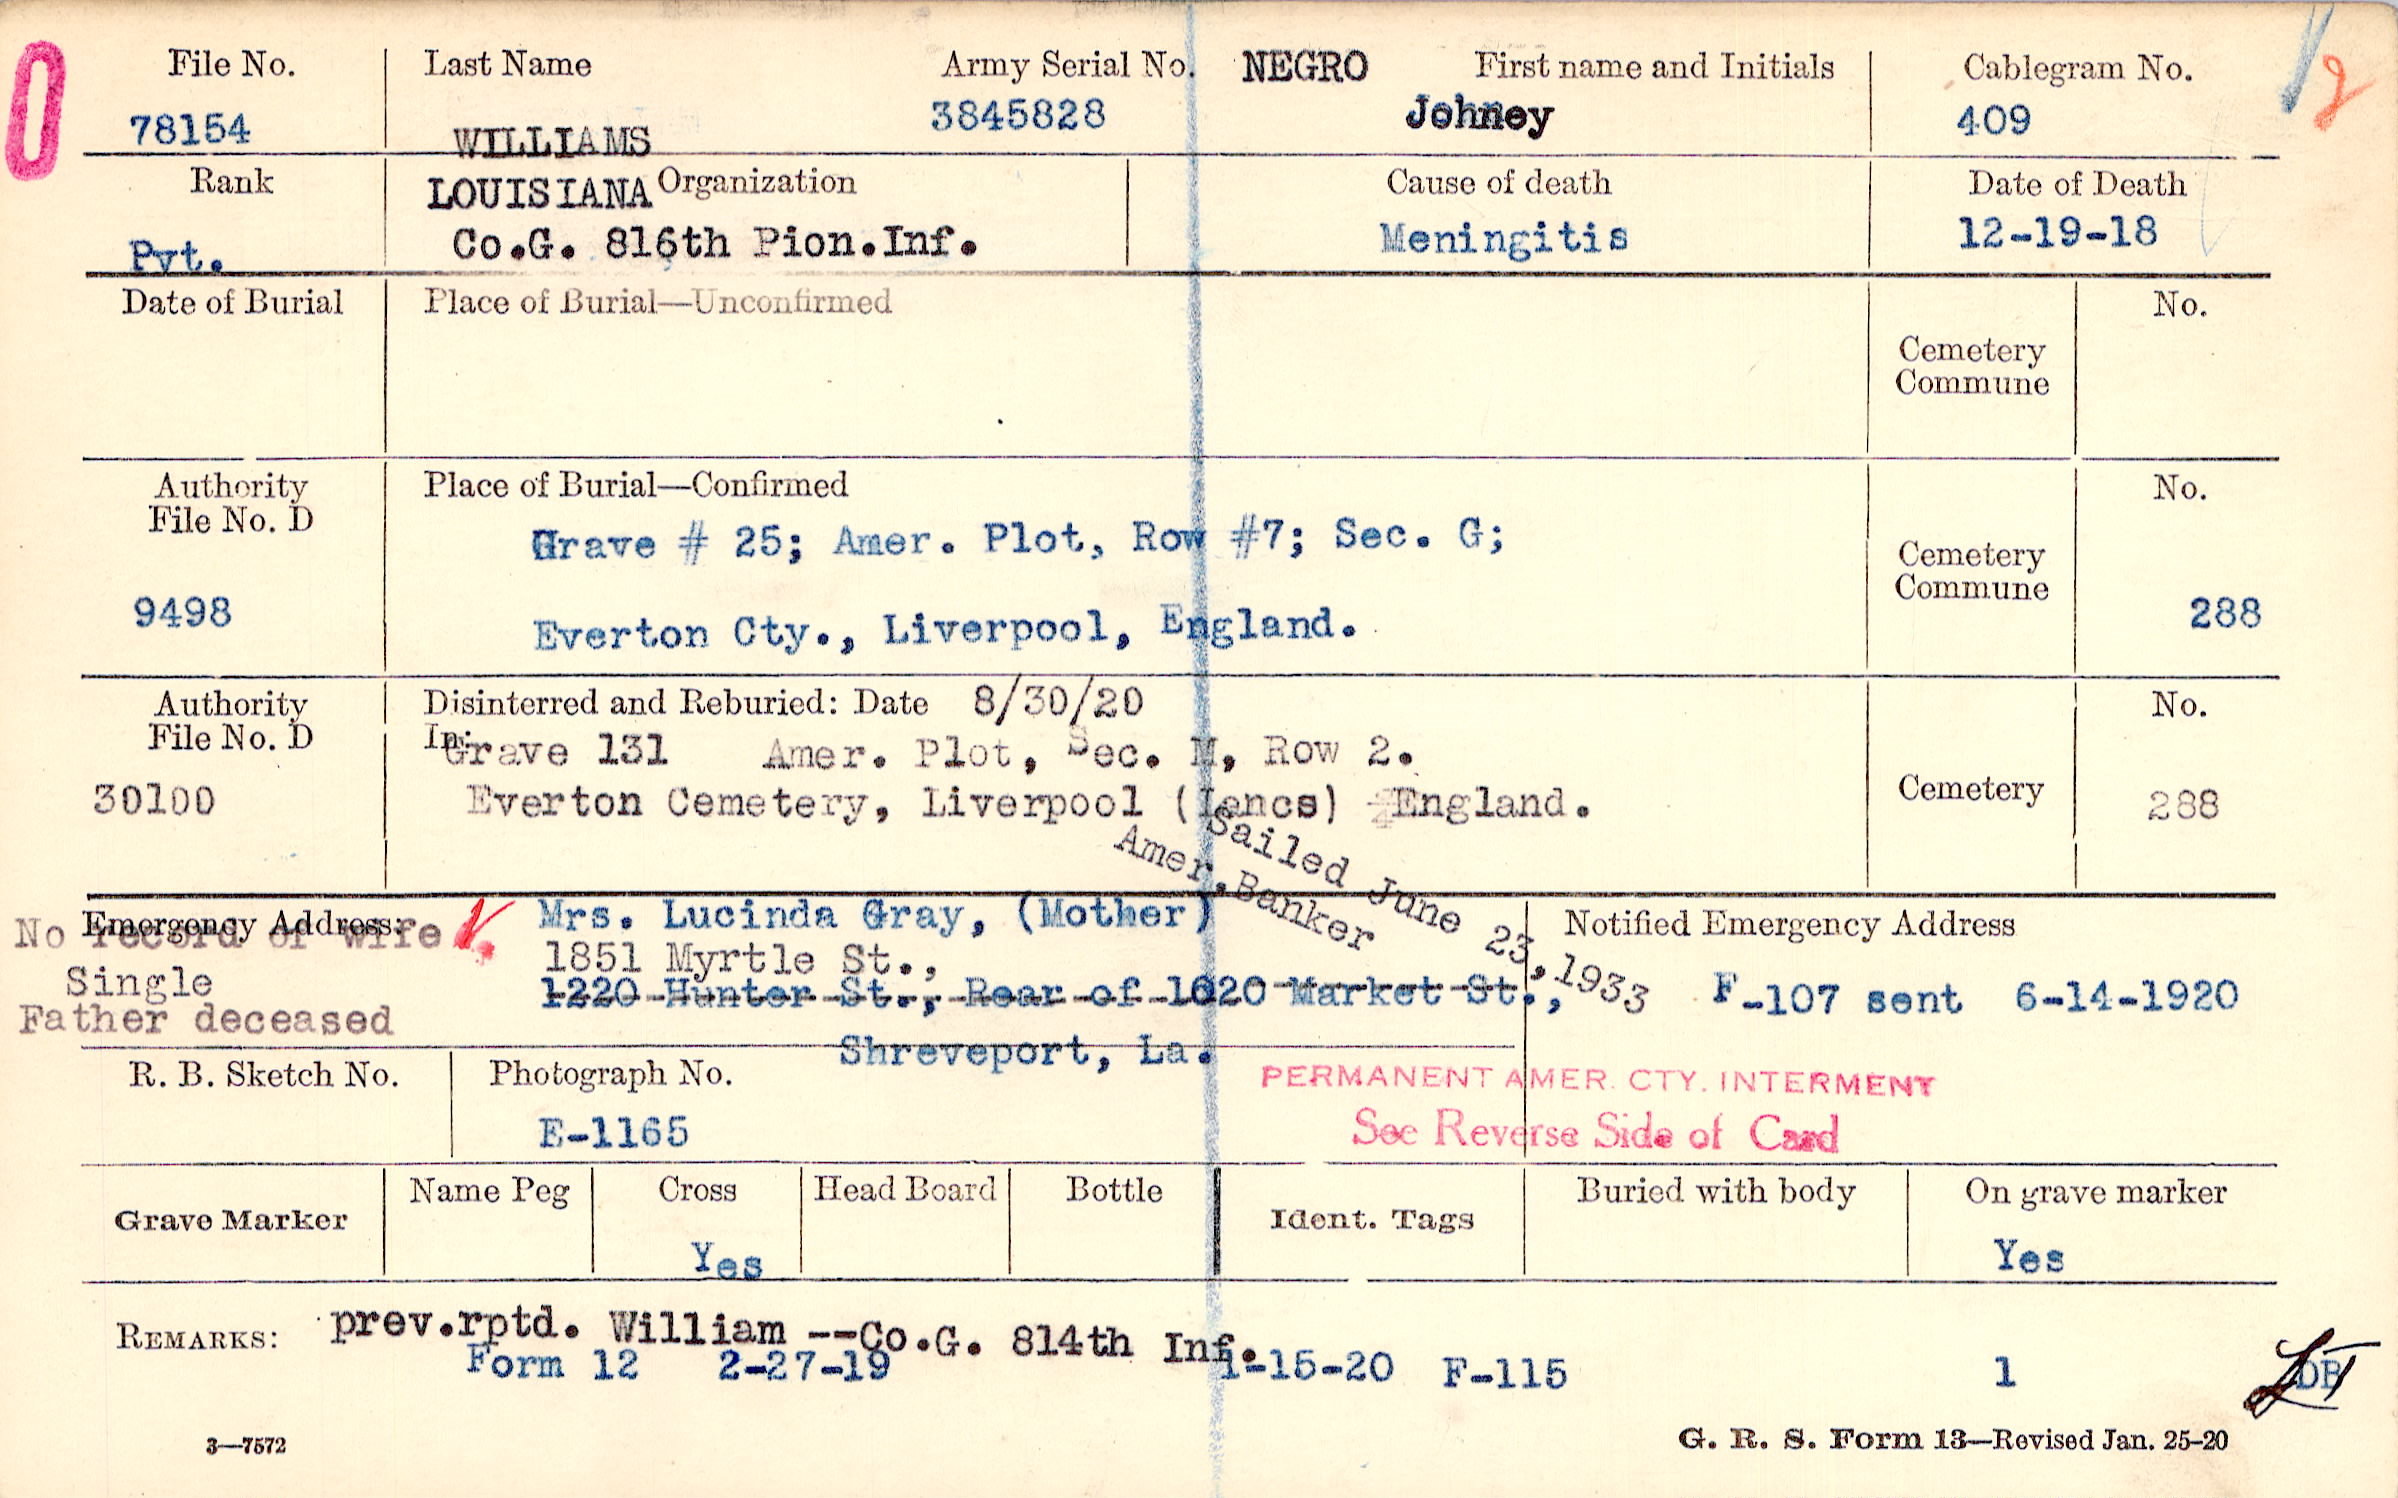 File No. Last Name Army Serial No. NEGRO First name and Initials Cablegram No.
78154 WILLIAMS 3845828 Johney 409
Rank LOUISIANA Organization Cause of death Date of Death
Pvt. Co.G. 816th Pion.Inf. Meningitis 12-19-18
Date of Burial Place of Burial—Unconfirmed No.
Cemetery
Commune
Authority Place of Burial—Confirmed No.
File No. D
Grave # 25; Amer. Plot, Row #7; Sec. G;
Cemetery
Commune
9498 Everton Cty., Liverpool, England. 288
Authority Disinterred and Reburied: Date 8/30/20 No.
File No. D In: Grave 131 Amer. Plot, Sec. M, Row 2.
30100 Everton Cemetery, Liverpool (Lancs) England. Cemetery 288
Sailed June 23, 1933
Amer. Banker
Emergency Address: Mrs. Lucinda Gray, (Mother) Notified Emergency Address
No record of wife
1851 Myrtle St.,
Single 1220 Hunter St., Rear of 1620 Market St., F-107 sent 6-14-1920
Father deceased
Shreveport, La.
R. B. Sketch No. Photograph No. PERMANENT AMER. CTY. INTERMENT
E-1165 See Reverse Side of Card
Grave Marker Name Peg Cross Head Board Bottle Ident. Tags Buried with body On grave marker
Yes Yes
REMARKS: prev.rptd. William --Co.G. 814th Inf.
Form 12 2-27-19 1-15-20 F-115 1
3—7572 G. R. S. Form 13—Revised Jan. 25-20